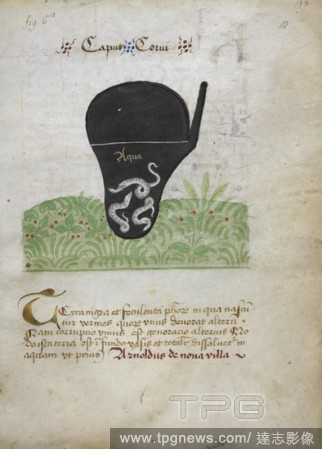 fig. 6
Capus Corui
Aqua
Terra nigra et feculenta in qua nascū
tur vermes quor vnus devorat alterū
Nam corrupcio vnius est generacio alterius
ista terra est ī fundo vasis et dissoluet in
vt prius Arnoldus de noua villa
TPG
www.tpgnews.com/達志影像